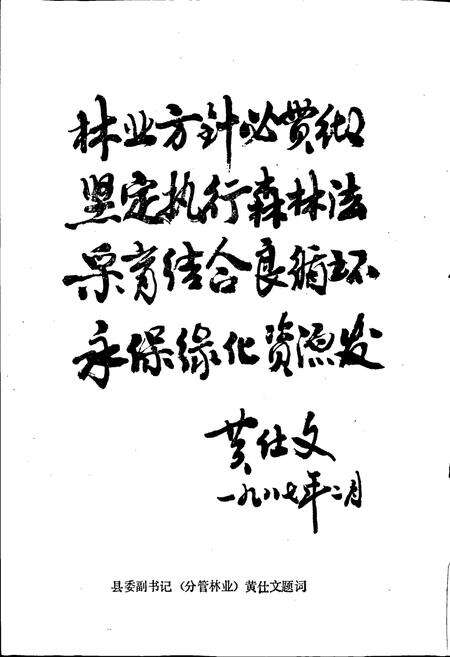 林业方针必贯彻
坚定执行森林法
采育结合良循环
永保绿化资源发
黄仕文
一九八七年二月
县委副书记（分管林业）黄仕文题词